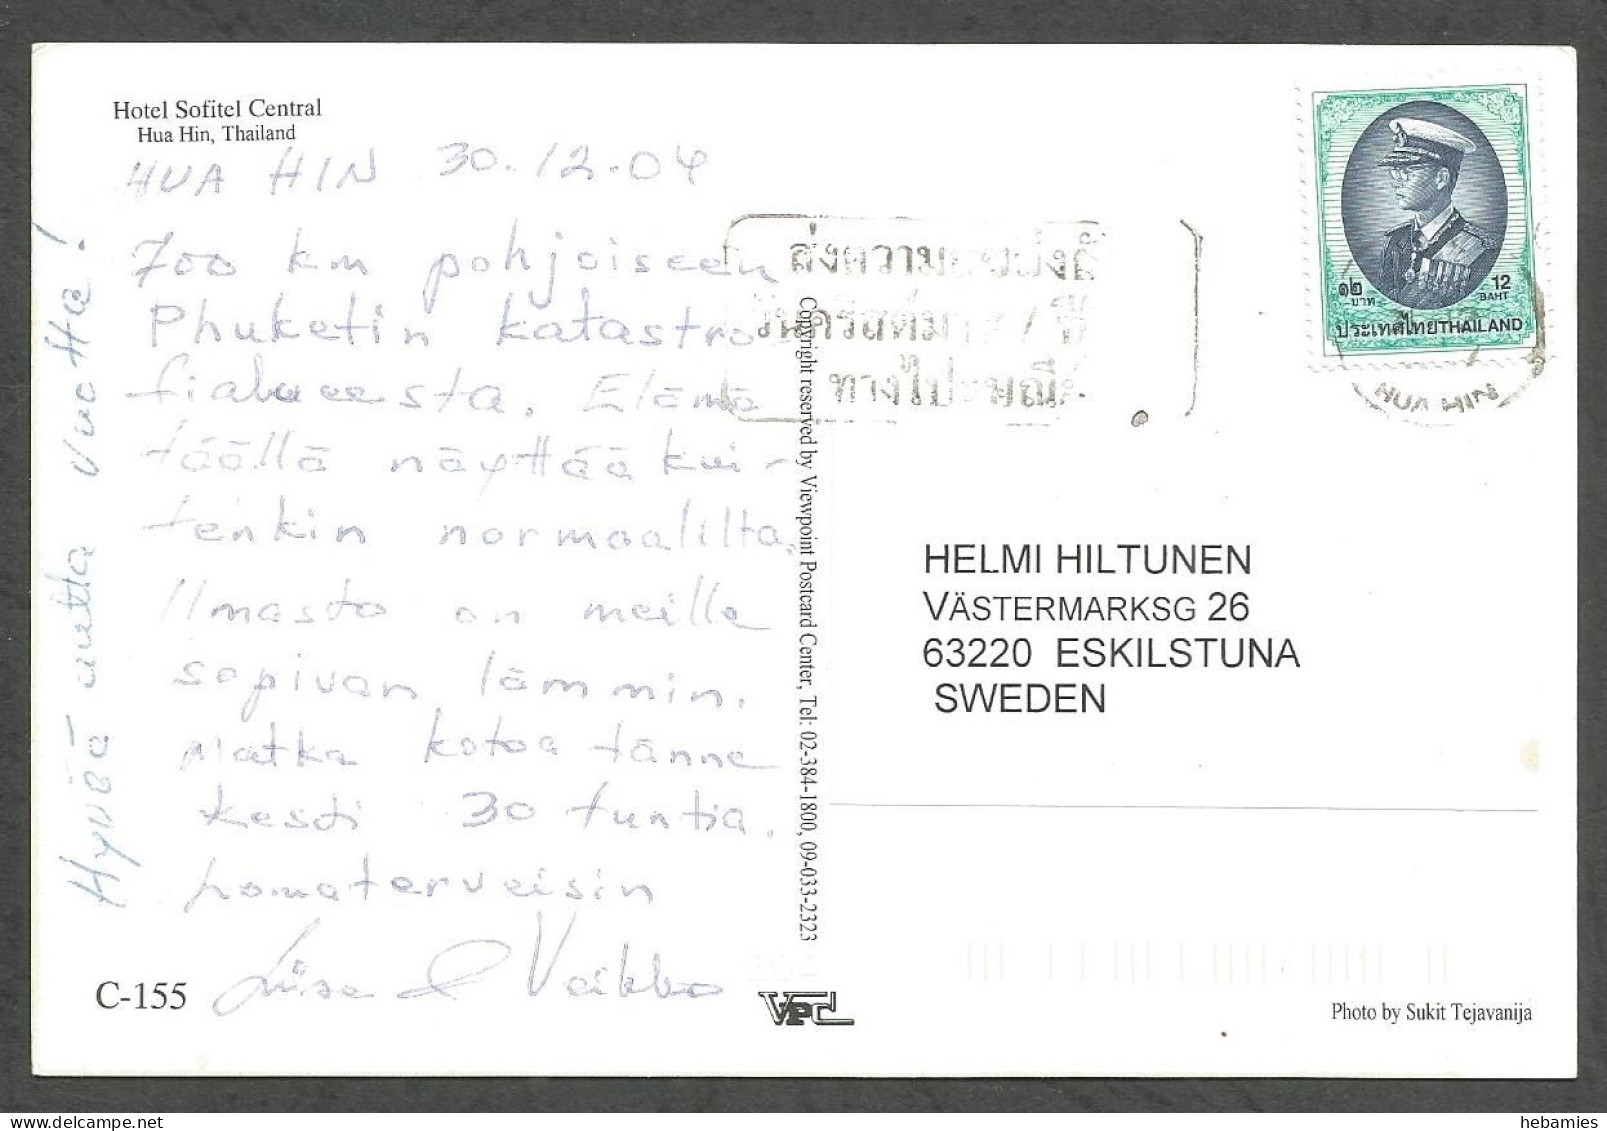 Hotel Sofitel Central
Hua Hin, Thailand
HUA HIN 30.12.04
700 km pohjoiseen
Phuketin katastro
fialueesta. Elämä
täällä näyttää kui-
tenkin normaalilta.
Ilmasto on meille
sopivan lämmin.
Matka kotoa tänne
kesti 30 tuntia.
Lomaterveisin
Liisa & Veikko
Hyvää uutta vuotta!
C-155
Copyright reserved by Viewpoint Postcard Center, Tel: 02-384-1800, 09-033-2323
VPC
ส่งความ
วันคริสต์มาส / ปี
ทางไปรษณีย์
๑๒ บาท
12 BAHT
ประเทศไทย THAILAND
HUA HIN
HELMI HILTUNEN
VÄSTERMARKSG 26
63220 ESKILSTUNA
SWEDEN
Photo by Sukit Tejavanija
hebamies / delcampe.net